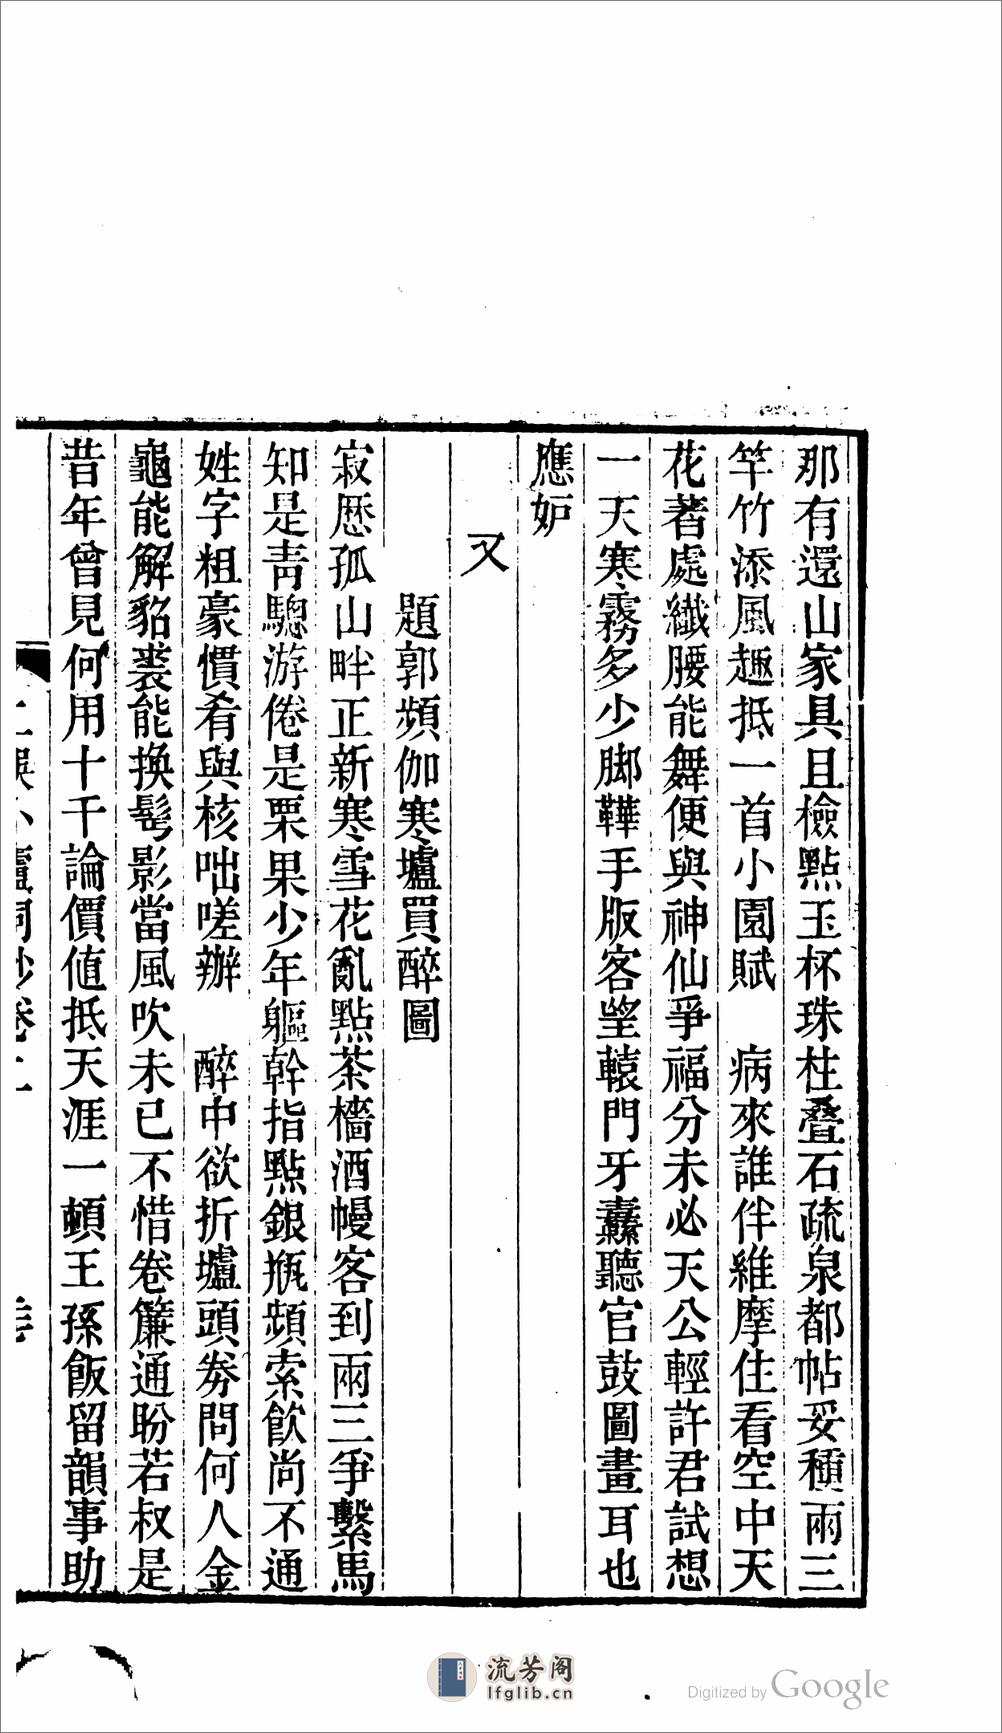 那有還山家具且檢點玉杯珠柱叠石疏泉都帖妥種兩三
竿竹添風趣抵一首小園賦　病來誰伴維摩住看空中天
花著處纖腰能舞便與神仙爭福分未必天公輕許君試想
一天寒霧多少脚鞾手版客望轅門牙纛聽官鼓圖畫耳也
應妒
又
題郭頻伽寒壚買醉圖
寂歷孤山畔正新寒雪花亂點茶檣酒幔客到兩三爭繫馬
知是青驄游倦是栗果少年軀幹指點銀瓶頻索飲尚不通
姓字粗豪慣肴與核咄嗟辦　醉中欲折壚頭券問何人金
龜能解貂裘能換髩影當風吹未已不惜卷簾通盼若叔是
昔年曾見何用十千論價值抵天涯一頓王孫飯留韻事助
流芳阁
lfglib.cn
Digitized by Google